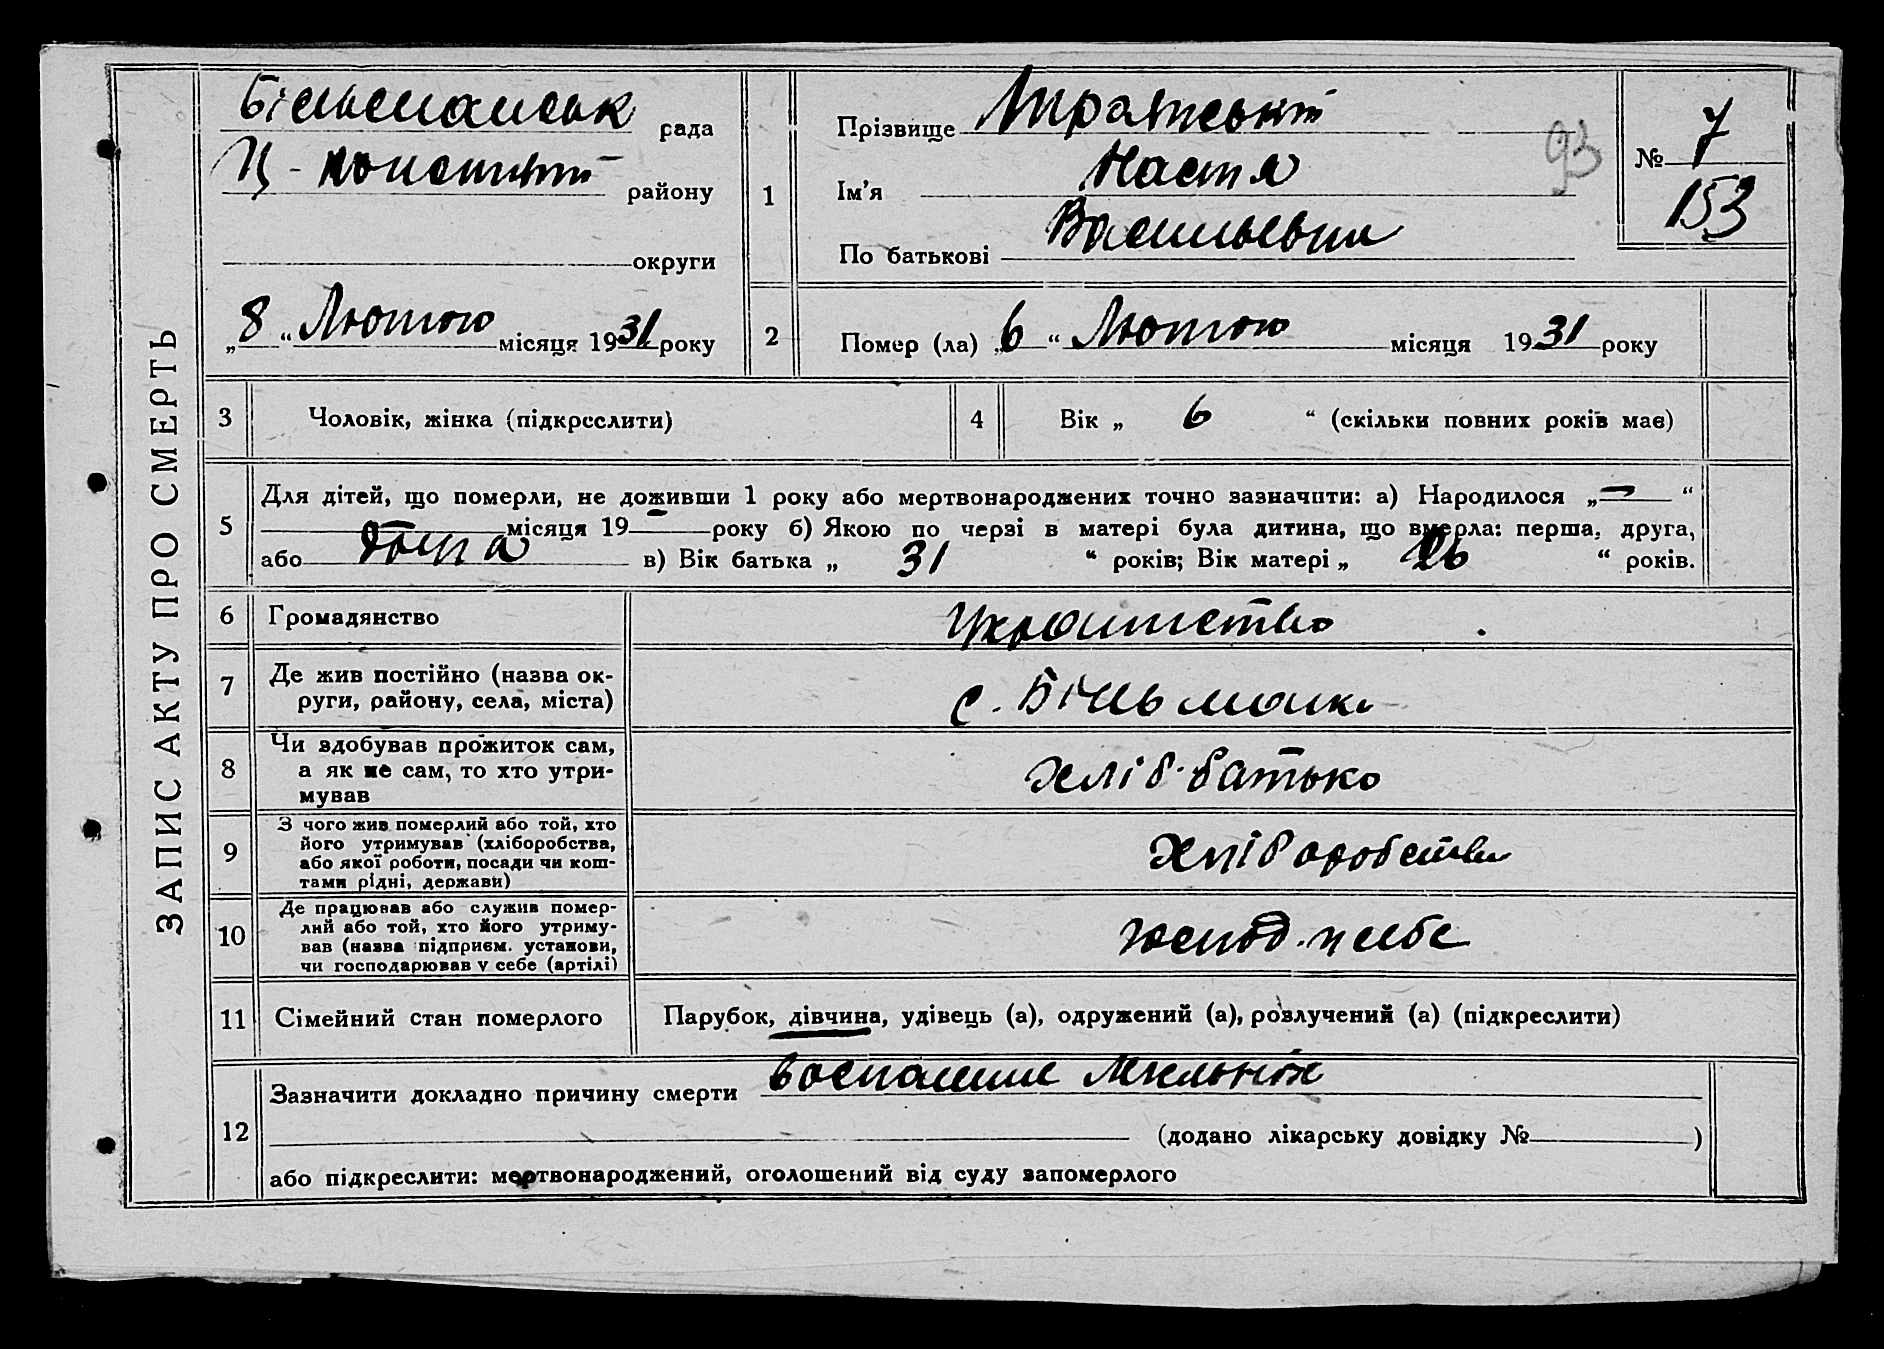 ЗАПИС АКТУ ПРО СМЕРТЬ
Більманськ рада
Ц-Констант району
округи
„8“ Лютого місяця 1931 року
1
Прізвище
Ім’я Настя
По батькові Васильевна
93
№ 7
153
2
Помер (ла) „6“ Лютого місяця 1931 року
3 Чоловік, жінка (підкреслити)
4 Вік „ 6 “ (скільки повних років має)
5
Для дітей, що померли, не доживши 1 року або мертвонароджених точно зазначити: а) Народилося „—“
— місяця 19 — року б) Якою по черзі в матері була дитина, що вмерла: перша, друга,
або в) Вік батька „ 31 “ років; Вік матері „ 26 “ років.
6 Громадянство
7 Де жив постійно (назва ок-
руги, району, села, міста)
с. Більманка
8 Чи здобував прожиток сам,
а як не сам, то хто утри-
мував
хліб. батько
9 З чого жив померлий або той, хто
його утримував (хліборобства,
або якої роботи, посади чи кош-
тами рідні, держави)
хліборобства
10 Де працював або служив помер-
лий або той, хто його утриму-
вав (назва підприєм. установи,
чи господарював у себе (артілі)
господ. у себе
11 Сімейний стан померлого
Парубок, дівчина, удівець (а), одружений (а), розлучений (а) (підкреслити)
12
Зазначити докладно причину смерти воспаление
(додано лікарську довідку № )
або підкреслити: мертвонароджений, оголошений від суду запомерлого